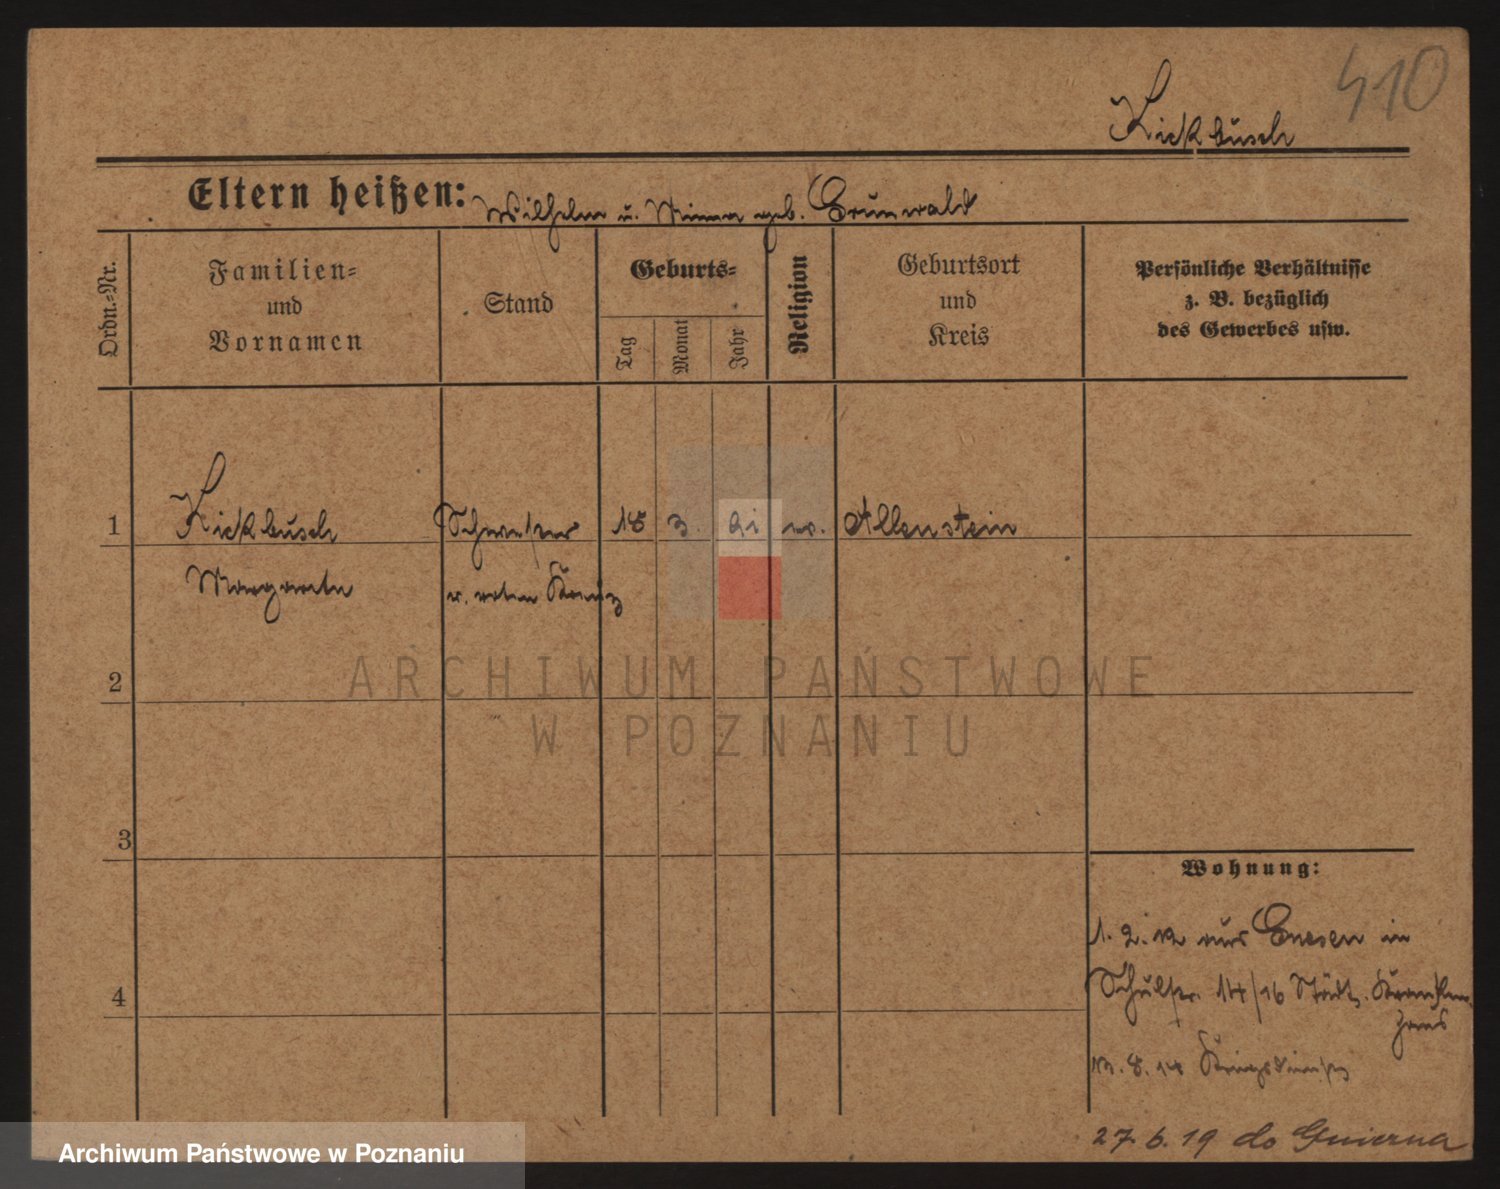 410
Kickbusch
Eltern heißen: Wilhelm u. Minna geb. Grunwald
Ordn.-Nr.
Familien-
und
Vornamen
Stand
Geburts-
Tag
Monat
Jahr
Religion
Geburtsort
und
Kreis
Persönliche Verhältnisse
z. B. bezüglich
des Gewerbes usw.
1
Kickbusch Schwester 18 3. ev. Allenstein
Margarete v. roten Kreuz
2
ARCHIWUM PAŃSTWOWE
W POZNANIU
3
Wohnung:
1. 2. 12 aus Gnesen in
4
Schulstr. 14/16 Städt. Kranken
haus
13. 8. 14 Kriegsdienst
27. 6. 19 do Gniezna
Archiwum Państwowe w Poznaniu